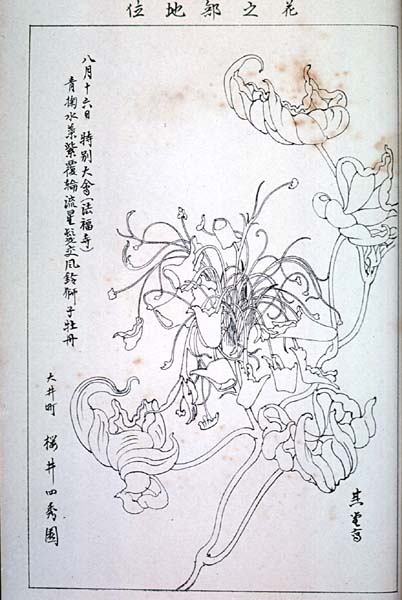 花之部地位
八月十六日 特別大會(法福寺)
青掬水葉紫覆輪流星髭交風鈴獅子牡丹
大井町 桜井四秀園